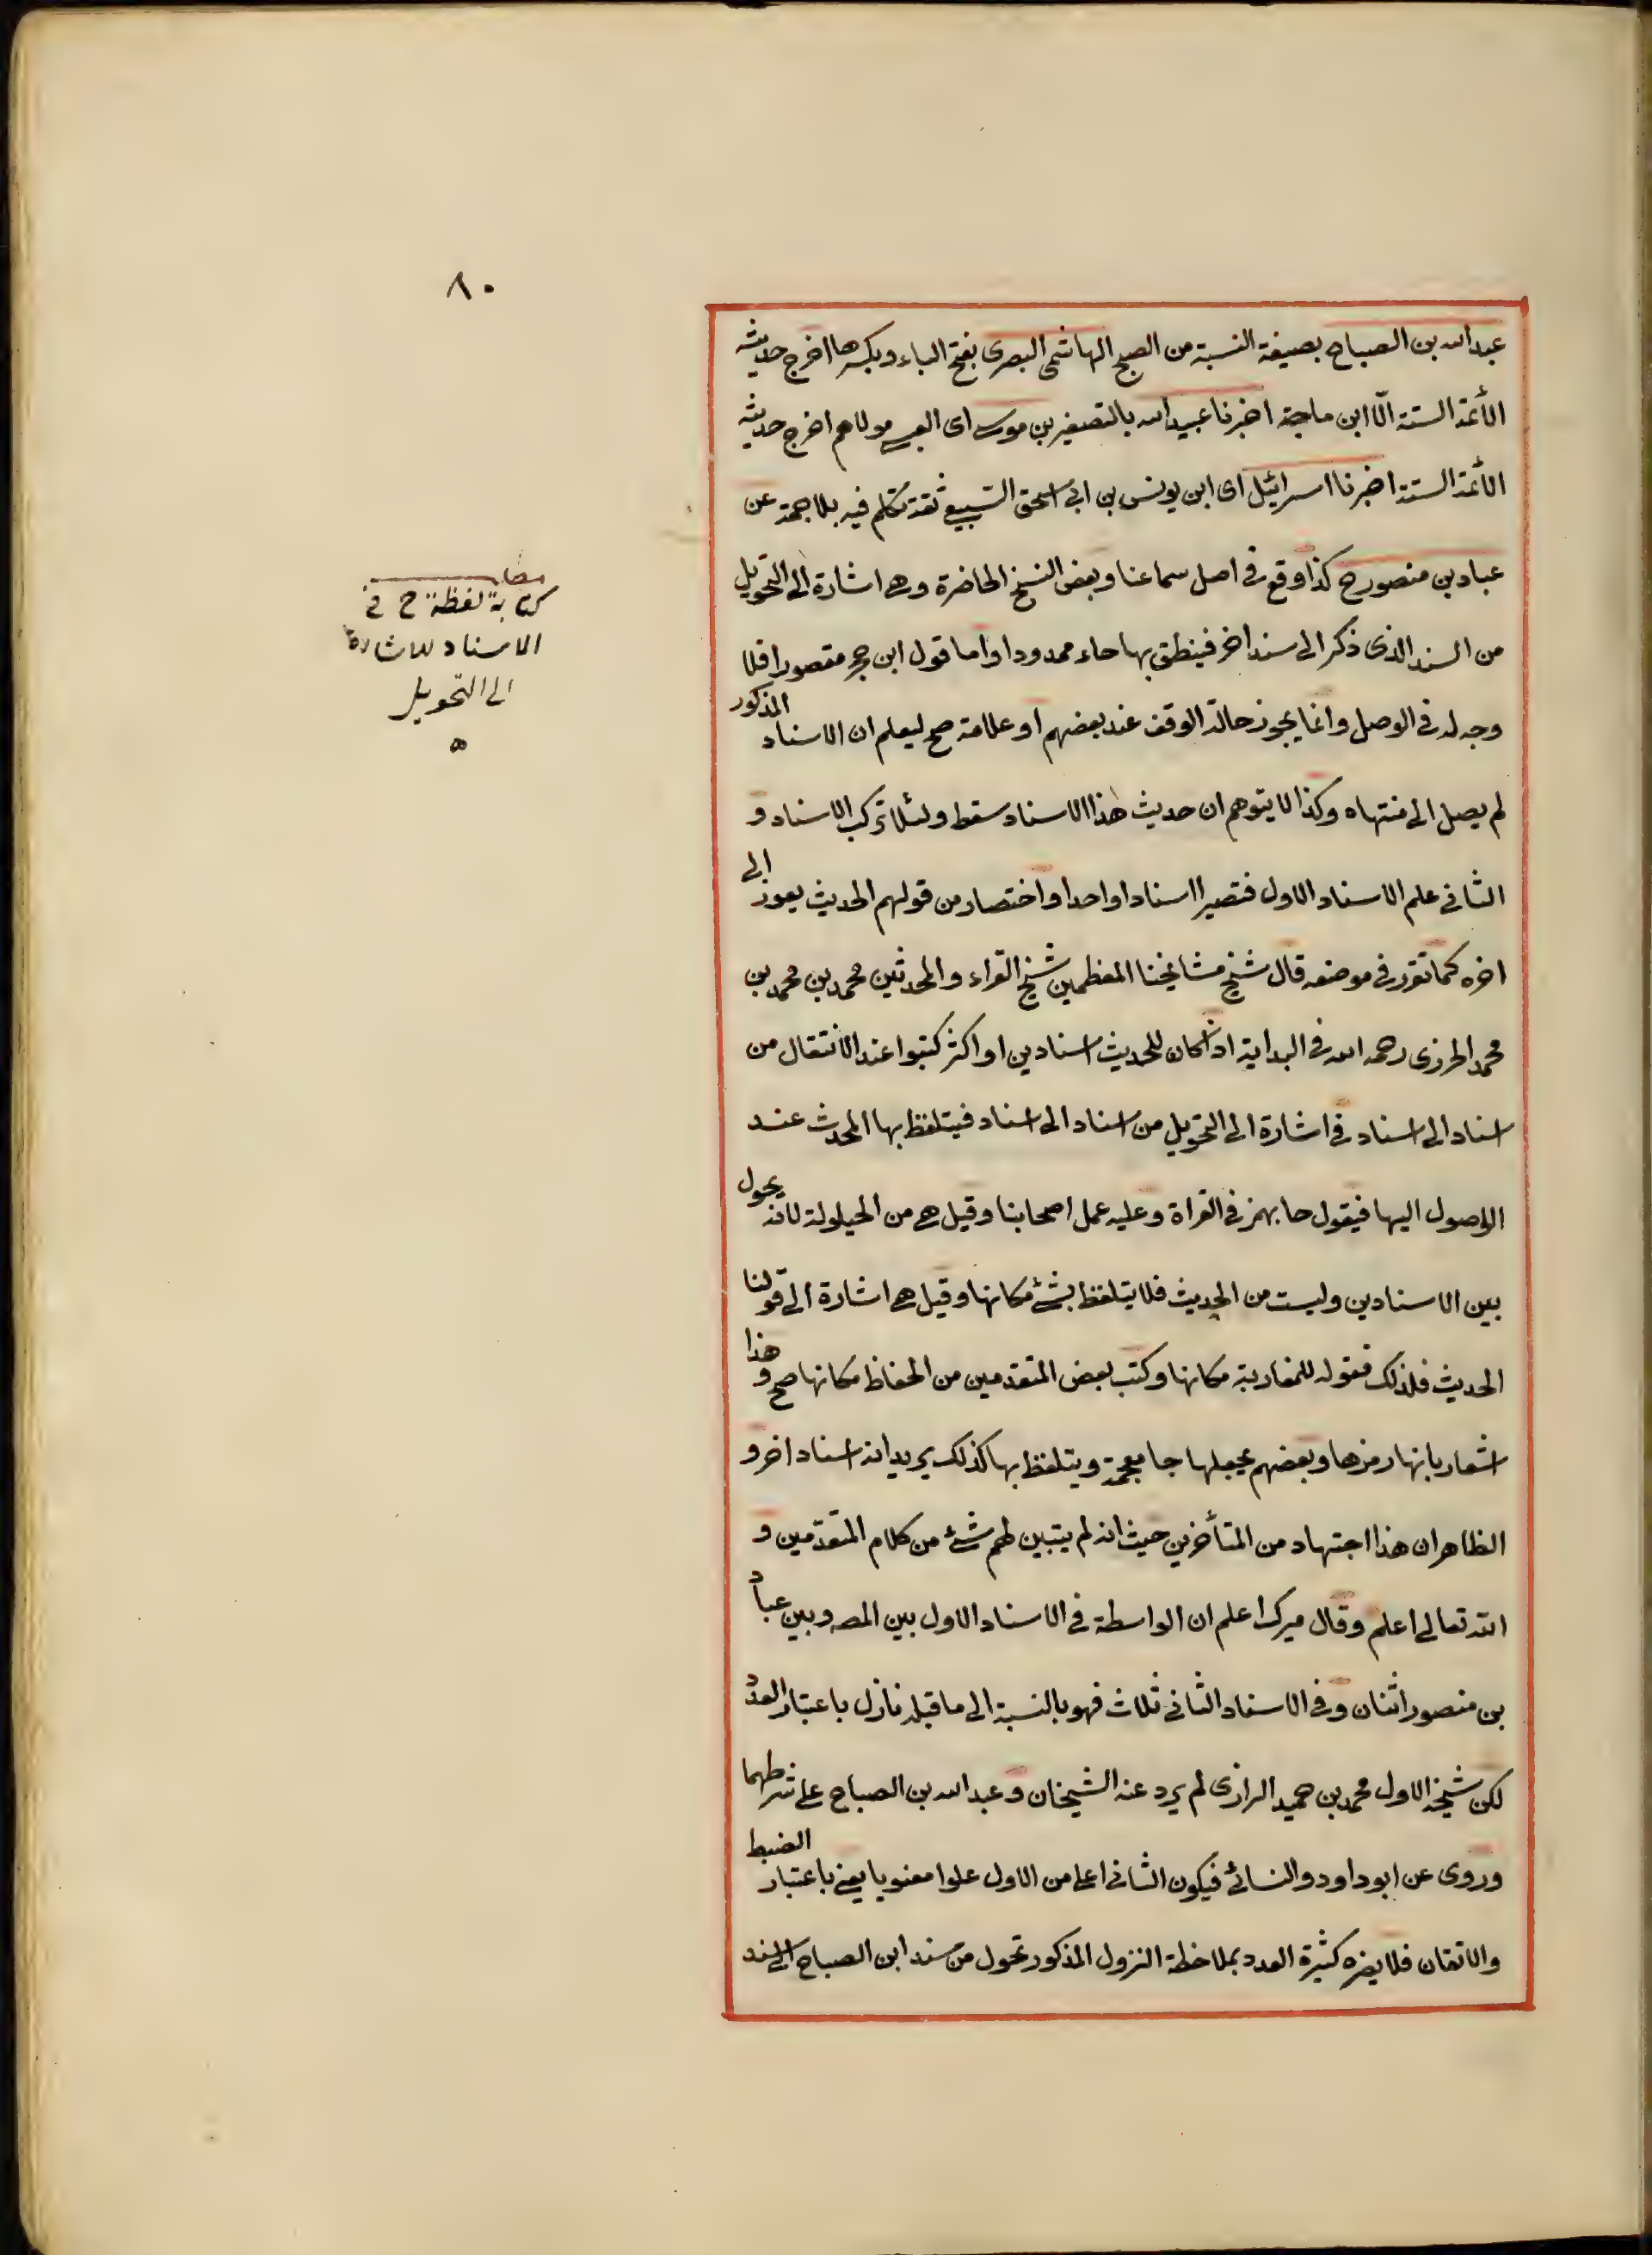 ٨٠
عبد الله بن الصباح بصيغة النسبة من الصبح الهاشمى البصرى بفتح الباء وبكسرها اخرج حديثه
الأئمة الستة الّا ابن ماجة اخبرنا عبيد الله بالتصغير بن موسى اى العبسى مولاهم اخرج حديثه
الأئمة الستة اخبرنا اسرائيل اى ابن يونس بن ابى اسحق السّبيعى ثقة تكلم فيه بلا حجة عن
عباد بن منصور ح كذا وقع فى اصل سماعنا وبعض النسخ الحاضرة وهى اشارة الى التحويل
من السند الذى ذكر الى سند اخر فينطق بها حاء ممدودا واما قول ابن حجر مقصورا فلا
وجه له فى الوصل وانما يجوز حالة الوقف عند بعضهم او علامة صح ليعلم ان الاسناد المذكور
لم يصل الى منتهاه وكذا لا يتوهم ان حديث هذا الاسناد سقط ولئلا تركب الاسناد و
الثانى علم الاسناد الاول فتصيرا اسنادا واحدا واختصار من قولهم الحديث يعوز الى
اخره كما تقرر فى موضعه قال شيخ مشايخنا المعظمين شيخ القراء والمحدثين محمد بن محمد بن
محمد الجزرى رحمه الله فى البداية اذا كان للحديث اسنادين او اكثر كتبوا عند الانتقال من
اسناد الى اسناد فى اشارة الى التحويل من اسناد الى اسناد فيتلفظ بها المحدث عند
الوصول اليها فيقول حا بهمز فى القراة وعليه عمل اصحابنا وقيل هى من الحيلولة لانه يحول
بين الاسنادين وليست من الحديث فلا يتلفظ بشئ مكانها وقيل هى اشارة الى قولنا
الحديث فلذلك فقوله للمغاربة مكانها وكتب بعض المتقدمين من الحفاظ مكانها صح وهذا
اشعار بانها رمزها وبعضهم يجعلها جا معجمة ويتلفظ بها كذلك يريد انه اسناد اخر و
الظاهر ان هذا اجتهاد من المتأخرين حيث انه لم يتبين لهم شئ من كلام المتقدّمين و
الله تعالى اعلم وقال ميرك اعلم ان الواسطة فى الاسناد الاول بين المصه وبين عباد
بن منصور اثنان وفى الاسناد الثانى ثلاث فهو بالنسبة الى ما قبله نازل باعتبار العدد
لكن شيخه الاول محمد بن حميد الرازى لم يرد عنه الشيخان وعبد الله بن الصباح على شرطهما
وروى عن ابو داود والنسائى فيكون الثانى اعلى من الاول علوا معنويا يعنى باعتبار الضبط
والاتقان فلا يضره كثيرة العدد بملاخظة النزول المذكور تحول من سند ابن الصباح الى سند
مطلب
كتابة لفظة ح فى
الاسناد للاشارة
الى التحويل
ه